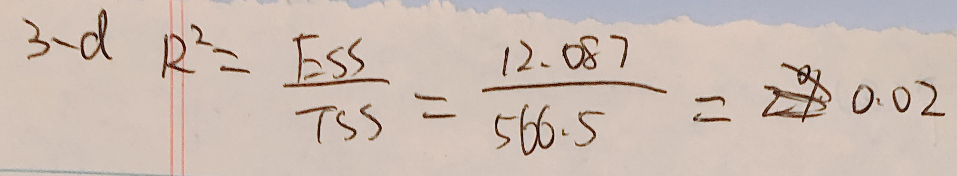 3-d R² = ESS / TSS = 12.087 / 566.5 = 0.02